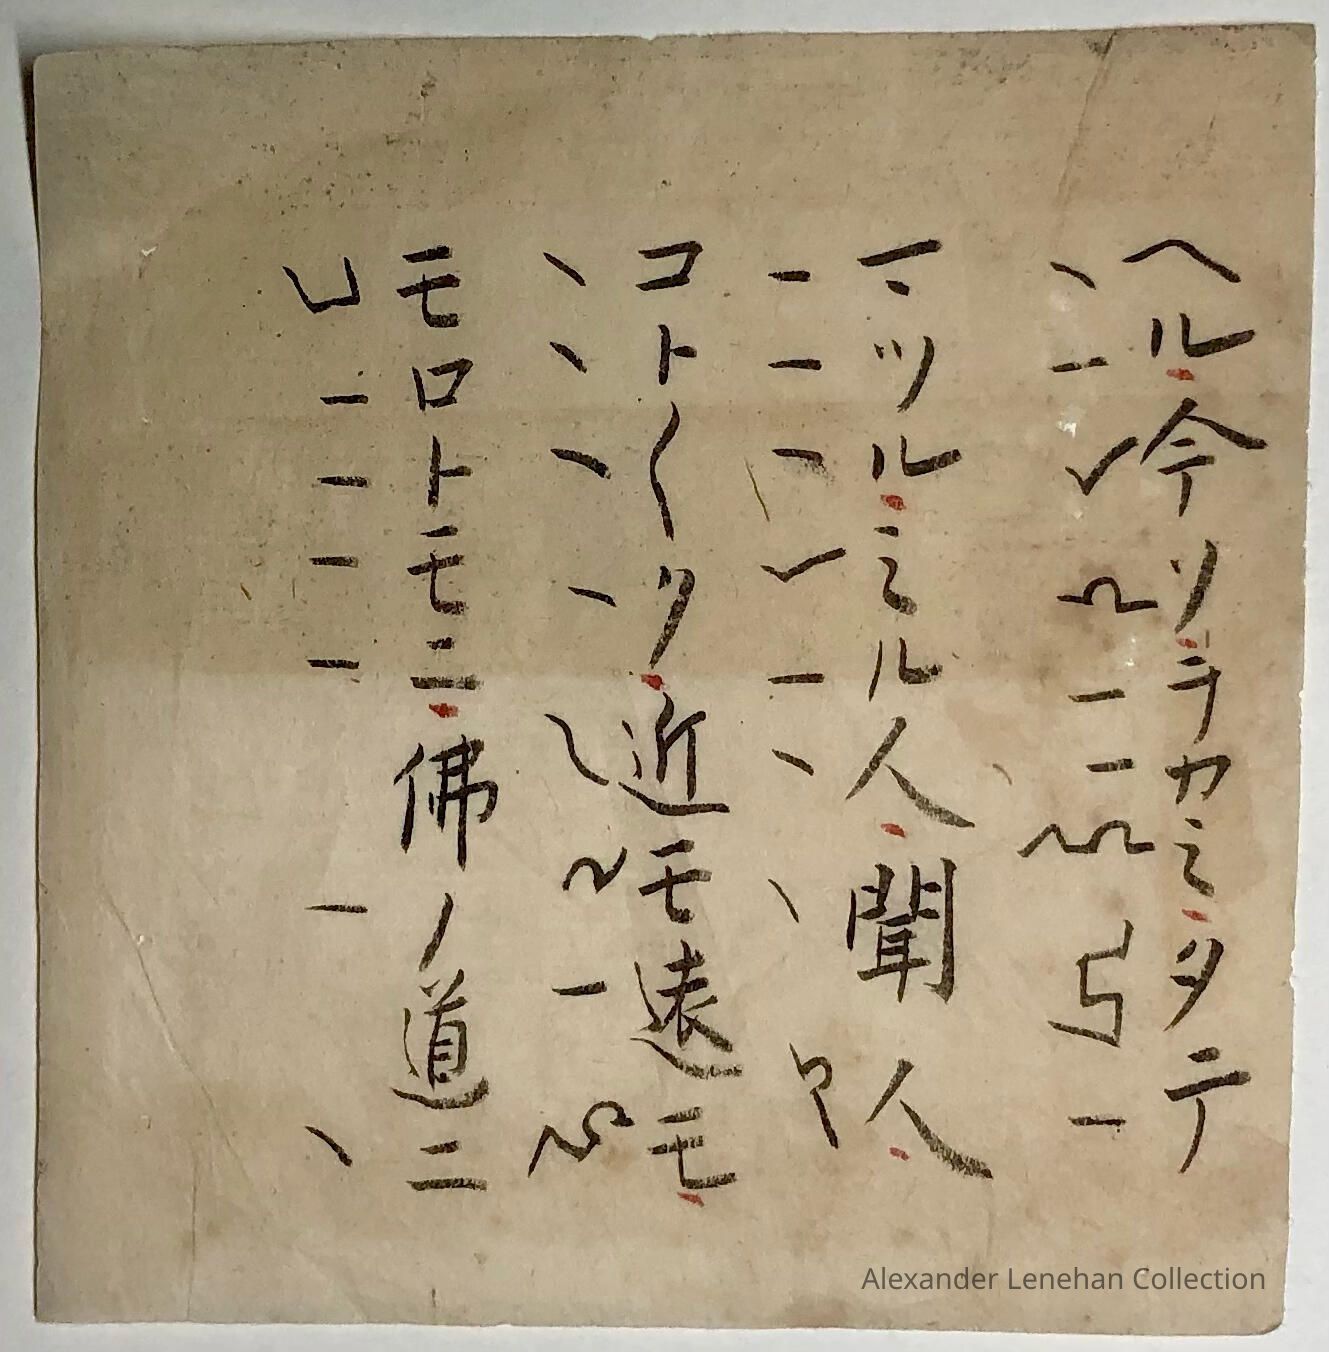 ヘル今ソヲカミタテ
マツルミル人聞人
コト〱ク近モ遠モ
モロトモニ佛ノ道ニ
Alexander Lenehan Collection